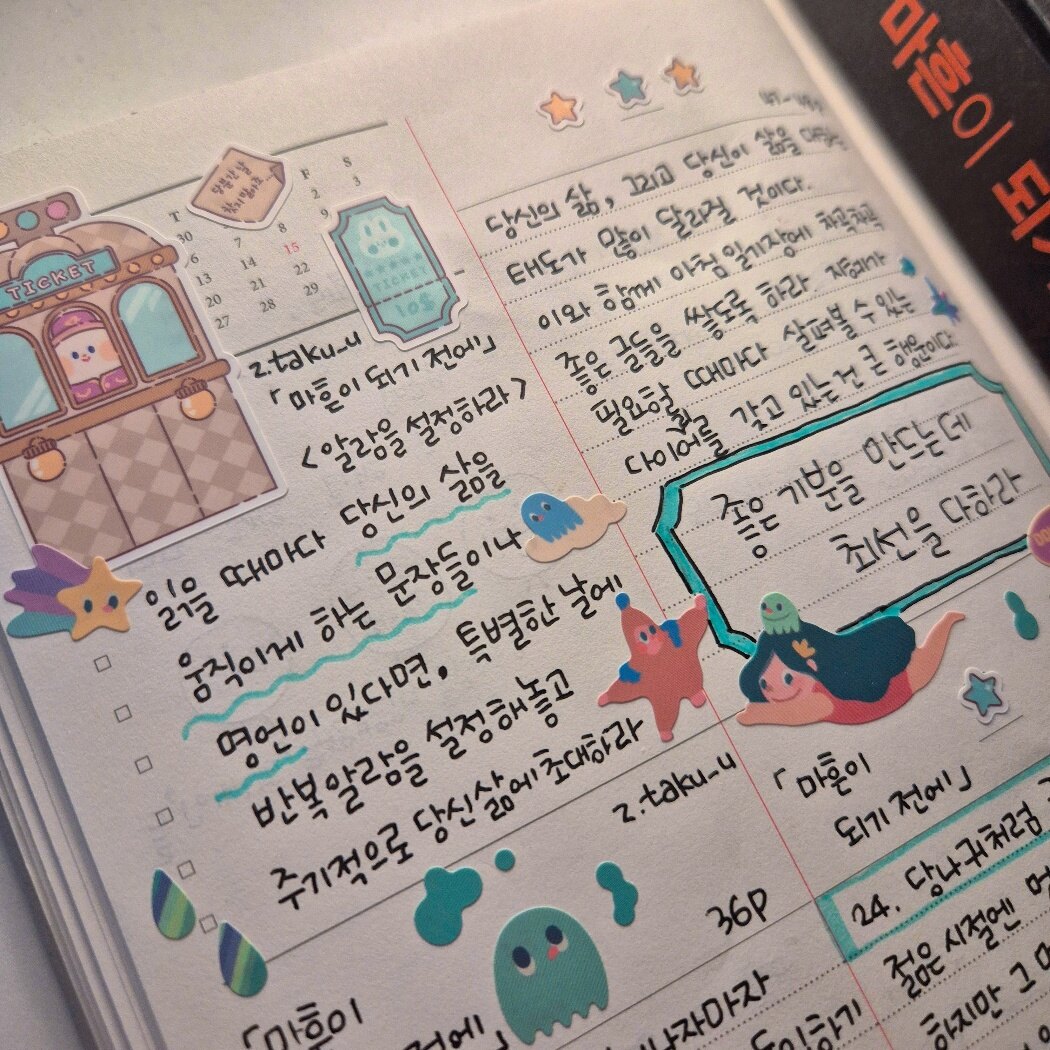 마흔이 되
TICKET
TICKET
10$
T F S
30 2 3
6 7 8 9
13 14 15
20 21 22
27 28 29
z.taku_u
「마흔이 되기 전에」
<알람을 설정하라>
읽을 때마다 당신의 삶을
움직이게 하는 문장들이나
명언이 있다면. 특별한 날에
반복알람을 설정해놓고
주기적으로 당신 삶에 초대하라
z.taku_u
36p
「마흔이
전에」
당신의 삶, 그리고 당신이 삶을
태도가 많이 달라질 것이다.
이와 함께 아침 일기장에 차곡차곡
좋은 글들을 쌓도록 하라.
필요할 때마다 살펴볼 수 있는
다이어리를 갖고 있는 건 큰 행운이다.
좋은 기분을 만드는데
최선을 다하라
「마흔이
되기 전에」
24. 당나귀처럼
젊은 시절엔
하지만 그